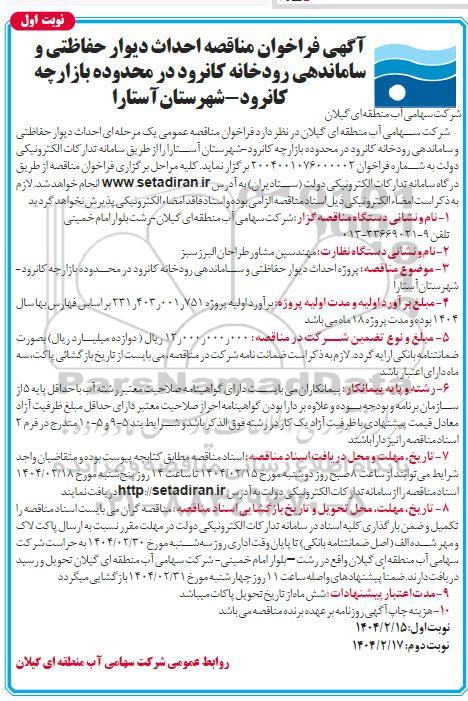 نوبت اول
آگهی فراخوان مناقصه احداث دیوار حفاظتی و
ساماندهی رودخانه کانرود در محدوده بازارچه
کانرود–شهرستان آستارا
شرکت سهامی آب منطقه‌ای گیلان
شرکت سهامی آب منطقه ای گیلان در نظر دارد فراخوان مناقصه عمومی یک مرحله ای احداث دیوار حفاظتی
و ساماندهی رودخانه کانرود در محدوده بازارچه کانرود-شهرستان آستارا را از طریق سامانه تدارکات الکترونیکی
دولت به شماره فراخوان ۲۰۰۴۰۰۱۰۷۶۰۰۰۰۰۲ برگزار نماید. کلیه مراحل برگزاری فراخوان مناقصه از طریق
درگاه سامانه تدارکات الکترونیکی دولت (ستاد ایران) به آدرس www.setadiran.ir انجام خواهد شد. لازم
به ذکر است امضاء الکترونیکی ذیل اسناد مناقصه الزامی بوده و اسناد فاقد امضاء الکترونیکی پذیرش نخواهد گردید
۱-نام و نشانی دستگاه مناقصه گزار: شرکت سهامی آب منطقه ای گیلان-رشت بلوار امام خمینی
تلفن ۹-۳۳۶۶۹۰۲۱-۰۱۳
۲-نام و نشانی دستگاه نظارت: مهندسین مشاور طراحان البرز سبز
۳-موضوع مناقصه: پروژه احداث دیوار حفاظتی و ساماندهی رودخانه کانرود در محدوده بازارچه کانرود-
شهرستان آستارا
۴-مبلغ برآورد اولیه و مدت اولیه پروژه: برآورد اولیه پروژه ۲۳۱,۴۰۳,۰۰۱,۷۵۱ بر اساس فهارس بها سال
۱۴۰۴ بوده و مدت پروژه ۱۸ ماه می باشد
۵-مبلغ و نوع تضمین شرکت در مناقصه: ۱۲,۰۰۰,۰۰۰,۰۰۰ ریال (دوازده میلیارد ریال) بصورت
ضمانتنامه بانکی ارایه گردد. لازم به ذکر است ضمانت نامه شرکت در مناقصه، می بایست از تاریخ بازگشائی پاکت، سه
ماه دارای اعتبار باشد
۶-رشته و پایه پیمانکار: پیمانکاران می بایست دارای گواهینامه صلاحیت معتبر رشته آب با حداقل پایه ۵ از
سازمان برنامه و بودجه بوده و علاوه بر دارا بودن گواهینامه احراز صلاحیت معتبر دارای حداقل مبلغ ظرفیت آزاد
معادل قیمت پیشنهادی با ظرفیت آزاد یک کار در رشته فوق الذکر باشد و شرایط بند ۵-۹ و ۵-۱۰ مندرج در فرم ۲
اسناد مناقصه را نیز دارا باشند
۷-تاریخ، مهلت و محل دریافت اسناد مناقصه: اسناد مناقصه مطابق کتابچه پیوست بوده و متقاضیان واجد
شرایط می توانند از ساعت ۸ صبح روز دوشنبه مورخ ۱۴۰۴/۰۲/۱۵ تا ساعت ۱۴ روز پنج شنبه مورخ ۱۴۰۴/۰۲/۱۸
اسناد مناقصه را از سامانه تدارکات الکترونیکی دولت به آدرس http://setadiran.ir دریافت نمایند
۸-تاریخ، مهلت، محل تحویل و تاریخ بازگشایی اسناد مناقصه: مناقصه گران می بایست اسناد مناقصه را
تکمیل و ضمن بارگذاری کلیه اسناد در سامانه تدارکات الکترونیکی دولت در مهلت مقرر نسبت به ارسال پاکت لاک
و مهر شده الف (اصل ضمانتنامه بانکی) تا پایان وقت اداری روز سه‌شنبه مورخ ۱۴۰۴/۰۲/۳۰ به حراست شرکت
سهامی آب منطقه ای گیلان واقع در رشت–بلوار امام خمینی- شرکت سهامی آب منطقه ای گیلان تحویل و رسید
دریافت دارند. ضمنا پیشنهادهای واصله ساعت ۱۱ روز چهارشنبه مورخ ۱۴۰۴/۰۲/۳۱ بازگشایی میگردد
۹-مدت اعتبار پیشنهادات: شش ماه از تاریخ تحویل پاکات میباشد
۱۰-هزینه چاپ آگهی روزنامه بر عهده برنده مناقصه می باشد
نوبت اول: ۱۴۰۴/۲/۱۵
نوبت دوم: ۱۴۰۴/۲/۱۷
روابط عمومی شرکت سهامی آب منطقه ای گیلان